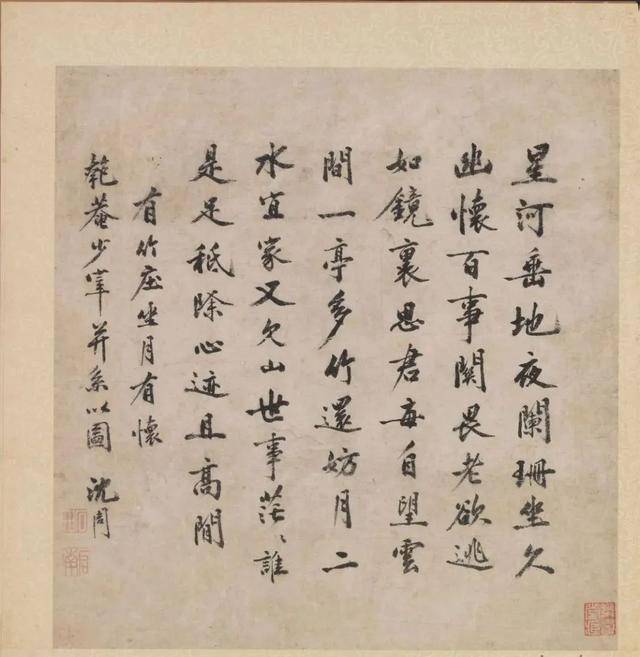 星河垂地夜闌珊坐久
幽懷百事關畏老欲逃
如鏡裏思君每自望雲
間一亭多竹還妨月二
水宜家又欠山世事茫〻誰
是足秪除心迹且高閒
有竹庄坐月有懷
匏菴少宰并系以圖 沈周